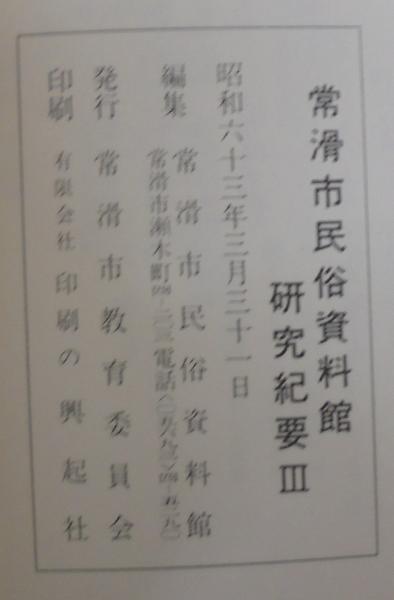 常滑市民俗資料館
研究紀要Ⅲ
昭和六十三年三月三十一日
編集 常滑市民俗資料館
常滑市瀬木町四-二〇三 電話(〇五六九三)四-五二九〇
発行 常滑市教育委員会
印刷 有限会社 印刷の興起社